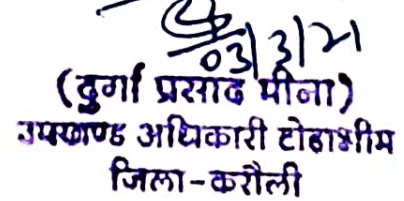 03/3/21
(दुर्गा प्रसाद मीना)
उपखण्ड अधिकारी टोडाभीम
जिला-करौली